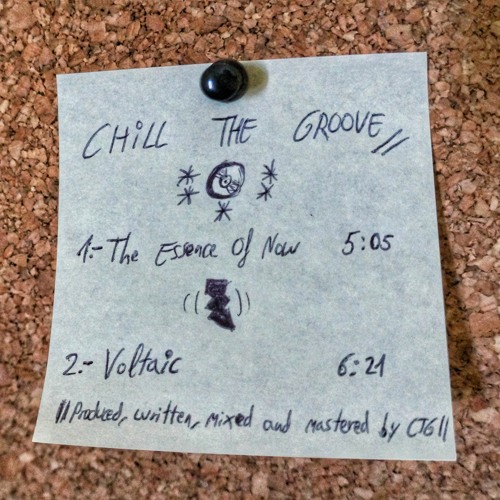 CHiLL THE GROOVE //
1.- The Essence Of Now 5:05
2.- Voltaic 6:21
// Produced, written, mixed and mastered by CJG //